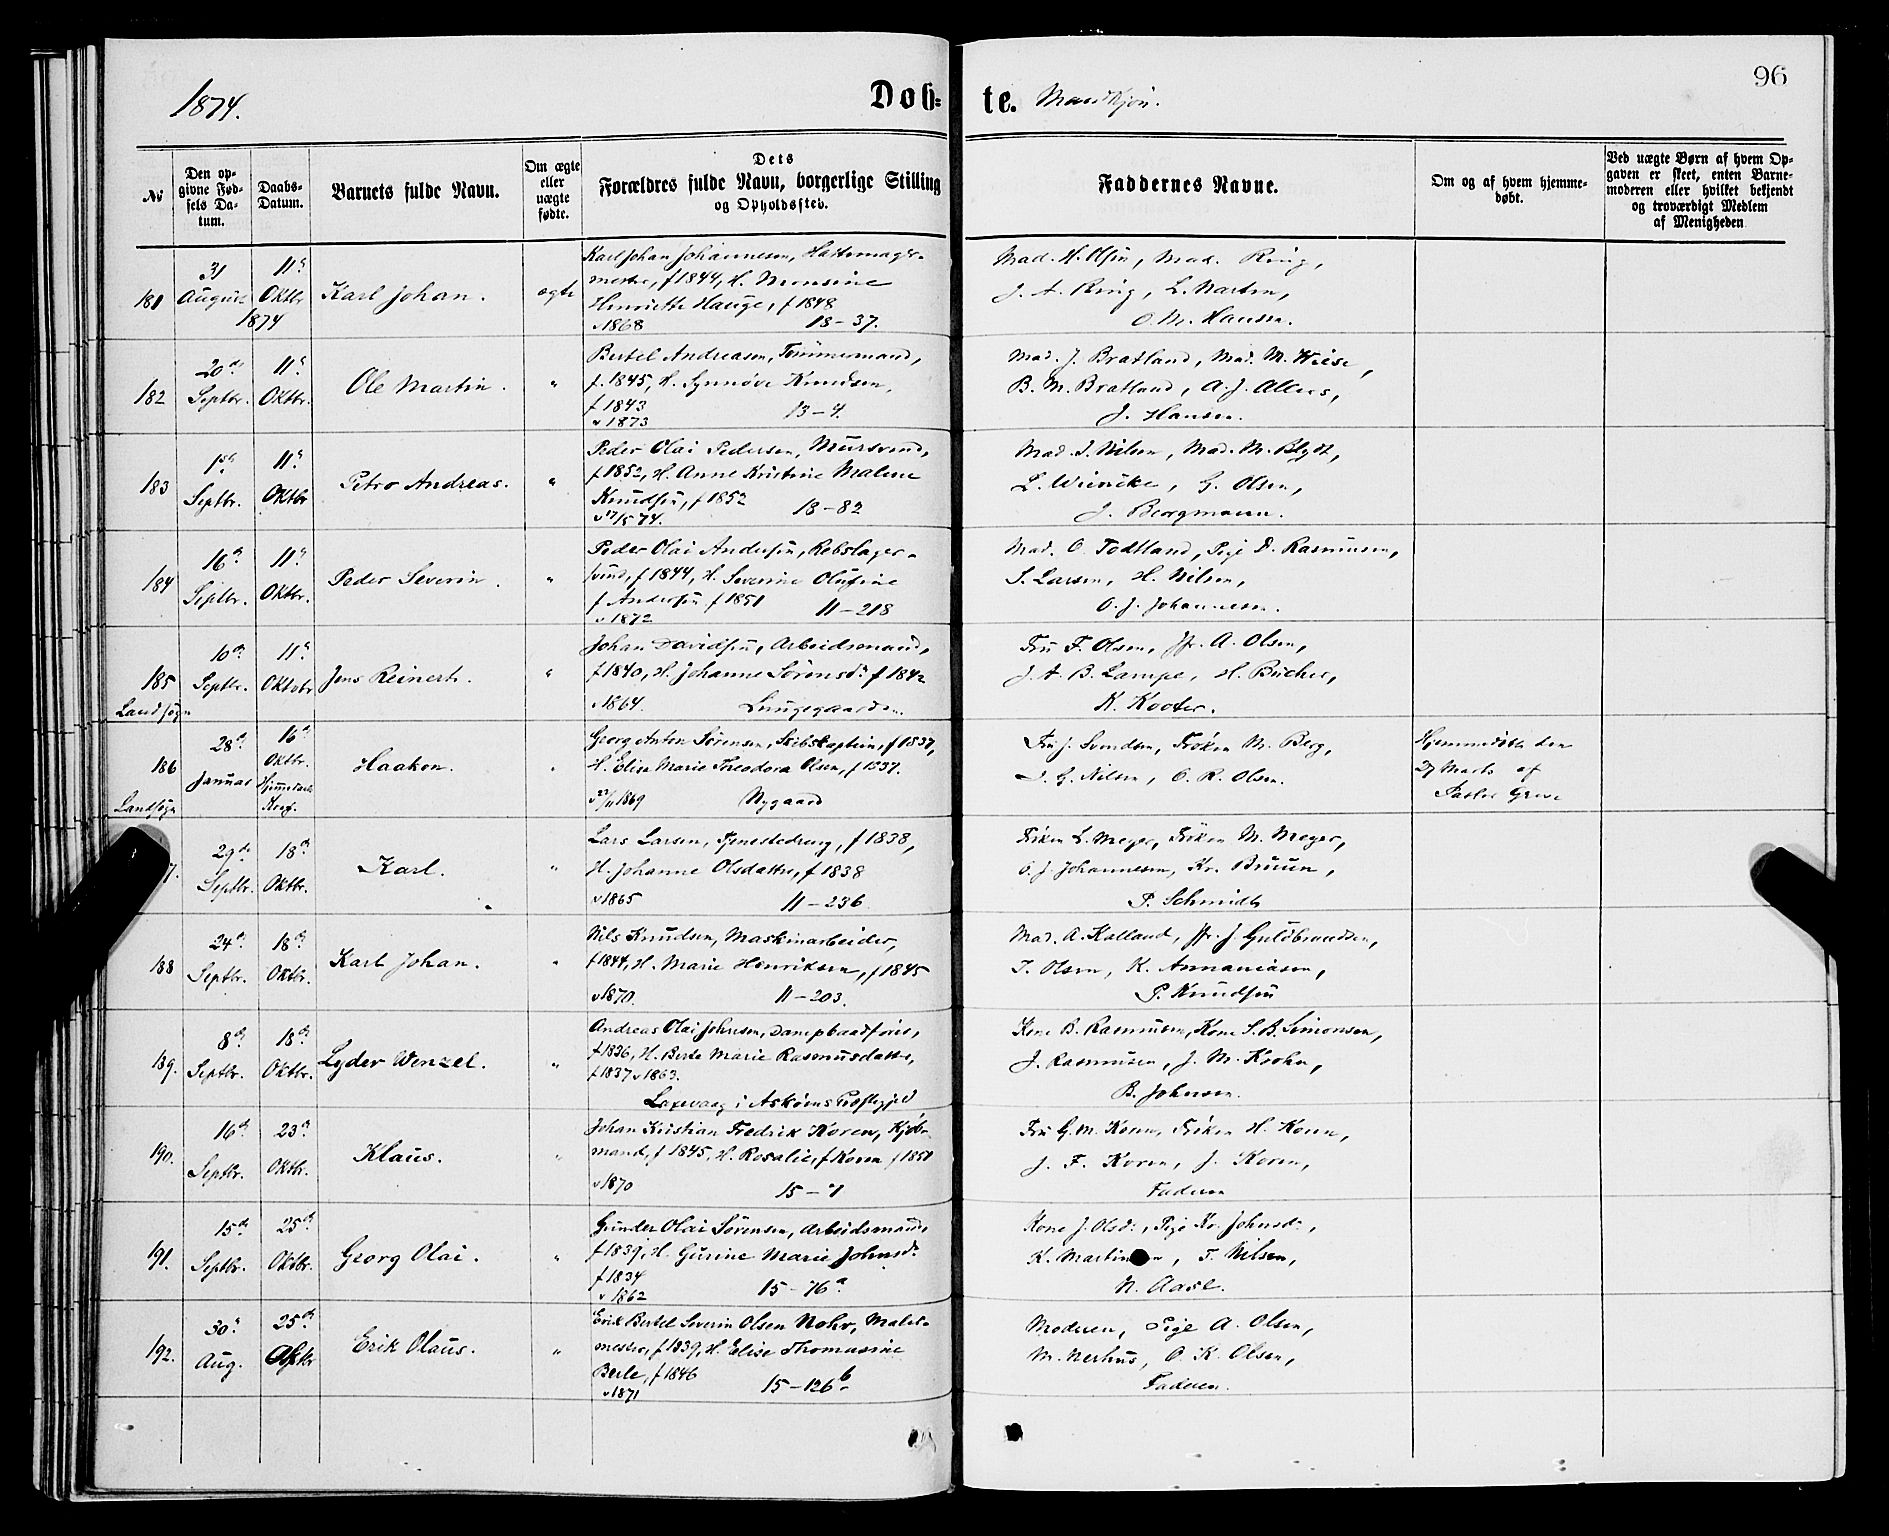 96
1874.
Døb-
te. Mandkjøn.
№
Den opgivne Fødsels Datum.
Daabs-Datum.
Barnets fulde Navn.
Om ægte eller uægte fødte.
Dets
Forældres fulde Navn, borgerlige Stilling
og Opholdssted.
Faddernes Navne.
Om og af hvem hjemmedøbt.
Ved uægte Børn af hvem Opgaven er skeet, enten Barnemoderen eller hvilket bekjendt og troværdigt Medlem af Menigheden
181
31 August
11te Oktbr
1874
Karl Johan.
ægte
Karl Johan Johannesen, Hattemager-
mester, f 1844, H. Monsine
Henriette Hauge, f 1848
v 1868 13-37.
Mad. H. Olsen, Mad. Ring,
J. A. Ring, L. Narten,
O. M. Hansen.
182
20de Septbr.
11te Oktbr.
Ole Martin.
"
Bertel Andreasen, Tømmermand,
f. 1845, H. Synnøve Knudsen,
f 1843 13-4.
v 1873
Mad. J. Bratland, Mad. M. Wiese,
B. M. Bratland, A. J. Allers,
J. Hansen.
183
1ste Septbr.
11te Oktbr
Petro Andreas.
"
Peder Olai Pedersen, Mursvend,
f 1852, H. Anne Kristine Malene
Knudsen, f 1852
v 17/5 74. 13-82
Mad. I. Nilsen, Mad. M. Blytt,
L. Wiencke, G. Olsen,
J. Bergmann.
184
16de Septbr.
11te Oktbr.
Peder Severin.
"
Peder Olai Andersen, Rebslager-
svend, f 1844, H. Severine Olufine
f Andersen f 1851 11-218
v 1872
Mad. O. Todtland, Pige D. Rasmussen,
S. Larsen, H. Nilsen,
O. J. Johannesen.
185
Landsogn
10de Septbr.
11te Oktobr
Jens Reinert.
"
Johan Davidsen, Arbeidsmand,
f 1840, H. Johanne Sørensd. f 1842
v 1864. Lungegaarden
Fru F. Olsen, Jfr. A. Olsen,
J. A. B. Lampe, H. Bucher,
K. Kooter.
186
Landsogn
28de Januar
16de Oktbr.
Haakon.
"
Georg Anton Sørensen, Skibskaptein, f 1837,
H. Elise Marie Theodora Olsen, f 1837.
v 27/11 1869 Nygaard
Fru J. Svendsen, Frøken M. Berg,
G. Nilsen, O. R. Olsen.
Hjemmedøbt den
27 Marts af
Pastor Greve
7.
29de Septbr.
18de Oktbr.
Karl.
"
Lars Larsen, Tjenestedreng, f 1838,
H. Johanne Olsdatter, f 1838
v 1865 11-236
Frøken L. Meyer, Frøken M. Meyer,
O. J. Johannesen, Kr. Bruun,
P. Schmidt
188
24de Septbr.
18de Oktbr.
Karl Johan.
"
Nils Knudsen, Maskinarbeider,
f 1844, H. Marie Henriksen, f 1845
v 1870. 11-203.
Mad. A. Kalland, Jfr. J. Guldbrandsen,
T. Olsen, K. Annaniasen,
P. Knudsen
189.
8de Septbr.
18de Oktbr.
Lyder Wenzel.
"
Andreas Olai Johnsen, Dampbaadfører,
f 1836, H. Berte Marie Rasmusdatter,
f 1837 v 1863.
Laxevaag i Askøens Præstegjeld
Kone B. Rasmussen, Kone S. B. Simonsen,
J. Rasmussen, J. M. Krohn,
B. Johnsen.
190.
16de Septbr.
23de Oktbr.
Klaus.
"
Johan Kristian Fredrik Koren, Kjøb-
mand, f 1845, H. Rosalie, f Koren f 1851
v 1870 15-7
Fru G. M. Koren, Frøken H. Koren,
J. F. Koren, J. Koren,
Faderen
191.
15de Septbr.
25de Oktbr.
Georg Olai.
"
Gunder Olai Sørensen, Arbeidsmand,
f 1839, H. Gurine Marie Johnsd.
f 1834 15-76a
v 1862
Kone J. Olsd., Pige Kr. Johnsd.,
K. Martinsen, T. Nilsen,
N. Aase.
192.
30te Aug.
25de Oktbr
Erik Olaus.
"
Erik Bertel Severin Olsen Nohr, Maler-
mester, f 1839, H. Elise Thomasine
Berle, f 1846 15-126b
v 1871
Moderen, Pige A. Olsen,
M. Nerhus, O. K. Olsen,
Faderen.